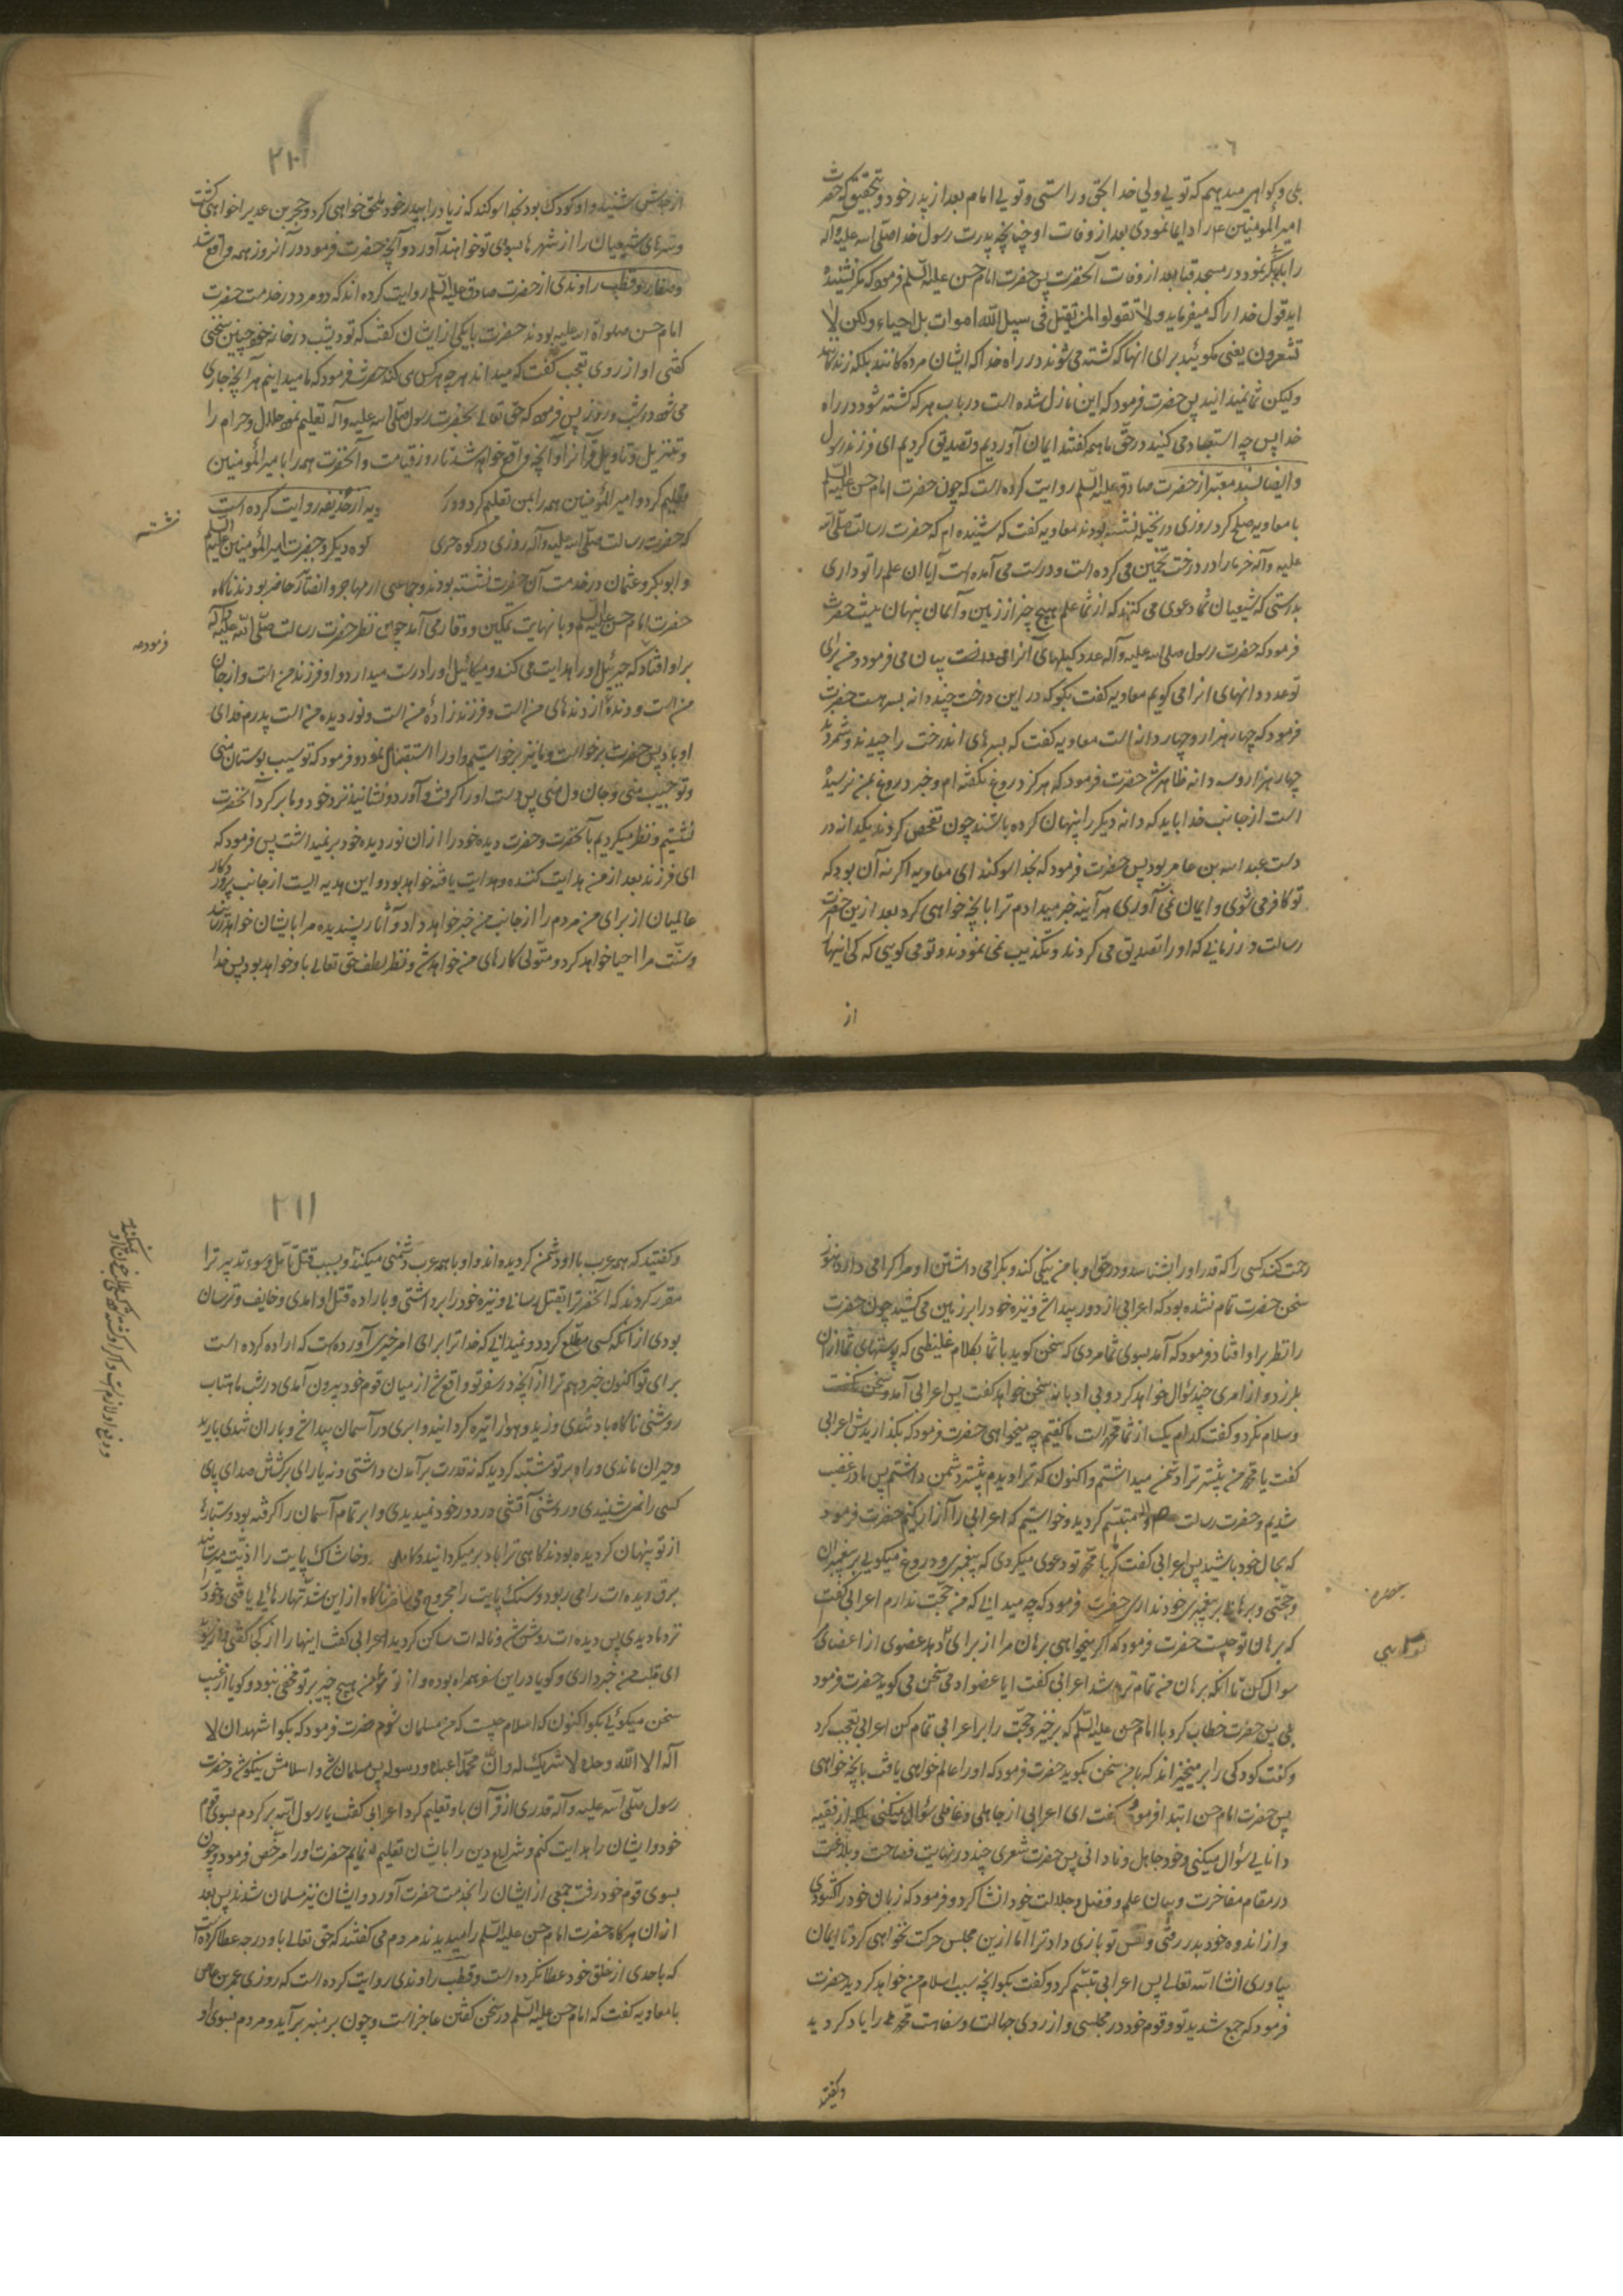 بلی و کواهی میدهیم که تویی ولی خدا بحق و راستی و تویی امام بعد از پدر خود و بتحقیق که حضرت
امیر المومنین را بما نمودی بعد از وفات او چنانچه پدرت رسول خدا صلی اسه علیه و آله
را بابوبکر نمود در مسجد قبا بعد از وفات آنحضرت پس حضرت امام حسن علیه السلم فرمود که مکر نشنیده
اید قول خدا را که میفرماید ولا تقولوا لمن یقتل فی سبیل الله اموات بل احیاء ولکن لا
تشعرون یعنی مکوئید برای انها که کشته می شوند در راه خدا که ایشان مرده کانند بلکه زنده اند
ولیکن شما نمیدانید پس حضرت فرمود که این نازل شده است در باب هر که کشته شود در راه
خدا پس چه استبعاد می کنید در حق ما همه کفتند ایمان آوردیم و تصدیق کردیم ای فرزند رسول
وایضا بسند معتبر از حضرت صادق علیه السلم روایت کرده است که چون حضرت امام حسن علیه السلم
با معاویه صلح کرد روزی در نخیله نشسته بودند معاویه کفت که شنیده ام که حضرت رسالت صلی الله
علیه و آله خرما را در درخت تخمین می کرده است و درست می آمده است آیا ان علم را تو داری
بدرستی که شیعیان شما دعوی می کنند که از شما علم هیچ چیز از زمین و آسمان پنهان نیست حضرت
فرمود که حضرت رسول صلی اسه علیه و آله عدد کیلهای آنرا بیان می فرمود و من برای
تو عدد دانهای انرا می کویم معاویه کفت بکو که در این درخت چند دانه بسر هست حضرت
فرمود که چهار هزار و چهار دانه است معاویه کفت که بسرهای اندرخت را چیدند و شمردند
چهار هزار و سه دانه ظاهر شد حضرت فرمود که هرکز دروغ نکفته ام و خبر دروغ بمن نرسیده
است از جانب خدا باید که دانه دیکر را پنهان کرده باشند چون تفحص کردند یکدانه در
دست عبد اسه بن عامر بود پس حضرت فرمود که بخدا سوکند ای معاویه اکر نه آن بود که
تو کافر می شوی و ایمان نمی آوری هر آینه خبر میدادم ترا بانچه خواهی کرد بعد ازین حضرت
رسالت در زمانی که او را تصدیق می کردند و تکذیب نمی نمودند و تو می کویی که کی اینها
از
از جدش شنید و او کودک بود بخدا سوکند که زیاد را بپدر خود ملحق خواهی کرد و حجر بن عدی را خواهی کشت
و سرهای شیعیان را از شهرها بسوی تو خواهند آورد و آنچه حضرت فرمود در آنروز همه واقع شد
و قطب راوندی از حضرت صادق علیه السلم روایت کرده اند که دو مرد در خدمت حضرت
امام حسن صلواة اسه علیه بودند حضرت بایکی از ایشان کفت که تو دیشب در خانه خود چنین سخنی
کفتی او از روی تعجب کفت که میداند هر چه هر کس می کند حضرت فرمود که ما میدانیم هر آنچه جاری
می شود در شب و روز پس فرمود که حق تعالی بحضرت رسول صلی اسه علیه و آله تعلیم نمود حلال و حرام را
و تنزیل و تاویل قرآنرا و آنچه واقع خواهد شد تا روز قیامت و آنحضرت همه را بامیر المومنین
تعلیم کرد و امیر المومنین همه را بمن تعلیم کرد و در از حذیفه روایت کرده است
که حضرت رسالت صلی اسه علیه و آله روزی در کوه حری کوه دیکر و حضرت امیر المومنین علیه السلم
و ابو بکر و عثمان در خدمت آن حضرت نشسته بودند و جماعتی از مهاجر و انصار حاضر بودند ناکاه
حضرت امام حسن علیه السلم با نهایت تمکین و وقار می آمد چون نظر حضرت رسالت صلی الله علیه و آله
بر او افتاد که جبرئیل او را هدایت می کند و میکائیل او را درست میدارد و او فرزند من است و از جان
من است و دنده از دندهای من است و فرزند زاده من است و نور دیده من است پدرم فدای
او باد پس حضرت برخواست و ما نیز برخواستیم و او را استقبال نمود و فرمود که تو سیب بوستان منی
و تو حبیب منی و جان و دل منی پس دست او را کرفت و آورد و نشانید نزد خود و ما بر کرد آنحضرت
نشستیم و نظر میکردیم بآنحضرت و حضرت دیده خود را از ان نور دیده خود بر نمیداشت پس فرمود که
ای فرزند بعد از من هدایت کننده و هدایت یافته خواهد بود و این هدیه ایست از جانب پروردکار
عالمیان از برای من مردم را از جانب من خبر خواهد داد و آثار پسندیده مرا بایشان خواهد رسانید
و سنت مرا احیا خواهد کرد و متولی کارهای من خواهد شد و نظر لطف حق تعالی با او خواهد بود پس خدا
نشسته
فرموده
رحمت کند کسی را که قدر او را بشناسد و در حق او با من نیکی کند و بکرامی داشتن او مرا کرامی دارد هنوز
سخن حضرت تمام نشده بود که اعرابی از دور پیدا شد و نیزه خود را بر زمین می کشید چون حضرت
را نظر بر او افتاد فرمود که آمد بسوی شما مردی که سخن کوید با شما بکلام غلیظی که پوستهای شما از ان
بلرزد و از امری چند سؤال خواهد کرد و بی ادبانه سخن خواهد کفت پس اعرابی آمد
و سلام نکرد و کفت کدام یک از شما محمد است ما کفتیم چه میخواهی حضرت فرمود که بکذاریدش اعرابی
کفت یا محمد من پیشتر ترا دشمن میداشتم و اکنون که ترا دیدم بیشتر دشمن داشتم پس ما در غضب
شدیم و حضرت رسالت متبسم کردید و خواستیم که اعرابی را آزار کنیم حضرت فرمود
که بحال خود باشید پس اعرابی کفت که یا محمد تو دعوی میکردی که پیغمبری و دروغ میکویی بر پیغمبران
و حجتی و برهانی بر پیغمبری خود نداری حضرت فرمود که چه میدانی که من حجت ندارم اعرابی کفت
که برهان تو چیست حضرت فرمود که اکر میخواهی برهان مرا از برای تو دهد عضوی از اعضای
سوال کن تا انکه برهان من تمام تر باشد اعرابی کفت ایا عضو ادمی سخن می کوید حضرت فرمود
بلی پس حضرت خطاب کرد با امام حسن علیه السلم که برخیز و حجت را بر اعرابی تمام کن اعرابی تعجب کرد
و کفت کودکی را بر میخیزاند که با من سخن بکوید حضرت فرمود که او را عالم خواهی یافت بانچه خواهی
پس حضرت امام حسن ابتدا فرمود کفت ای اعرابی از جاهلی و غافلی سؤال نمیکنی بلکه از فقیه
دانایی سؤال میکنی و خود جاهل و نادانی پس حضرت شعری چند در نهایت فصاحت و بلاغت
در مقام مفاخرت و بیان علم و فضل و جلالت خود انشا کرد و فرمود که زبان خود را کشودی
و از اندوه خود بدر رفتی و نفس تو بازی داد ترا اما ازین مجلس حرکت نخواهی کرد تا ایمان
بیاوری انشا الله تعالی پس اعرابی تبسم کرد و کفت بکو آنچه سبب اسلام من خواهد کردید حضرت
فرمود که جمع شدید تو و قوم خود در مجلسی و از روی جهالت و سفاهت محمد را یاد کردید
وکفتید
و کفتید که همه عرب با او دشمن کردیده اند و او با همه عرب دشمنی میکند و بسبب قتل تامل و سوء تدبیر ترا
مقرر کردند که آنحضرترا بقتل رسانی و نیزه خود را برداشتی و باراده قتل او امدی و خایف و ترسان
بودی از انکه کسی مطلع کردد و نمیدانی که خدا ترا برای امر خیری آورده است که اراده کرده است
برای تو اکنون خبر دهم ترا از آنچه در سفر تو واقع شد از میان قوم خود بیرون آمدی در شب ماهتاب
روشنی ناکاه باد تندی وزید و هوا را تیره کردانید و ابری در آسمان پیدا شد و باران تندی بارید
و حیران ماندی و راه بر تو مشتبه کردید که نه قدرت بر آمدن داشتی و نه یارای برکشتن صدای پای
کسی را نمی شنیدی و روشنی آتشی در دور خود نمیدیدی و ابر تمام آسمان را کرفته بود و ستارها
از تو پنهان کردیده بودند کاهی ترا باد بر میکردانید و کاهی و خاشاک پایت را اذیت میرسانید
برق دیده ات را می ربود و سنک پایت را مجروح می ساخت ناکاه از این شدتها رهائی یافتی و خود را
نزد ما دیدی پس دیده ات روشن شد و ناله ات ساکن کردید اعرابی کفت اینها را از کجا کفتی
ای قلب من خبر داری و کویا در این سفر همراه بوده و از هیچ چیز بر تو مخفی نبود و کویا از غیب
سخن میکوئی بکو اکنون که اسلام چیست که من مسلمان شوم حضرت فرمود که بکو اشهد ان لا
اله الا الله وحده لا شریک له وان محمدا عبده ورسوله پس مسلمان شد و اسلامش نیکو شد و حضرت
رسول صلی اسه علیه و آله قدری از قرآن باو تعلیم کرد اعرابی کفت یا رسول الله بر کردم بسوی قوم
خود و ایشان را هدایت کنم و شرایع دین را بایشان تعلیم نمایم حضرت او را مرخص فرمود و چون
بسوی قوم خود رفت جمعی از ایشان را بخدمت حضرت آورد و ایشان نیز مسلمان شدند پس بعد
ازان هرکاه حضرت امام حسن علیه السلم را میدیدند مردم می کفتند که حق تعالی باو درجه عطا کرده است
که باحدی از خلق خود عطا نکرده است و قطب راوندی روایت کرده است که روزی عمر بن عاص
با معاویه کفت که امام حسن علیه السلم در سخن کفتن عاجز است و چون بر منبر بر آید و مردم بسوی او